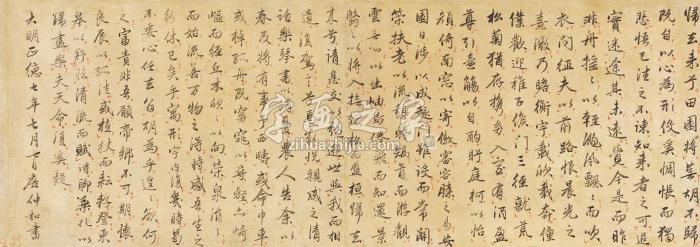 歸去来兮田園將蕪胡不歸
既自以心為形役奚惆悵而獨
悲悟已往之不諫知来者之可追
實迷途其未遠覺今是而昨
非舟摇摇以輕颺風飄飄而吹
衣問征夫以前路恨晨光之
熹微乃瞻衡宇載欣載奔僮
僕歡迎稚子候門三徑就荒
松菊猶存攜幼入室有酒盈
尊引壺觴以自酌眄庭柯以怡
顔倚南窗以寄傲審容膝之易安
園日涉以成趣門雖設而常關
策扶老以流憩時矯首而遊觀
雲無心以出岫鳥倦飛而知還景
翳翳以將入撫孤松而盤桓歸去
来兮請息交以絶遊世與我而相
違復駕言兮焉求悅親戚之情
話樂琴書以消憂農人告余以
春及將有事于西疇或命巾車
或棹孤舟既窈窕以尋壑亦崎
嶇而經丘木欣欣以向榮泉涓涓
而始流善萬物之得時感吾生之
行休已矣乎寓形宇内復幾時曷
不委心任去留胡為乎遑遑欲何
之富貴非吾願帝鄉不可期懷
良辰以孤往或植杖而耘耔登東
皋以舒嘯臨清流而賦詩聊乘化以
歸盡樂夫天命復奚疑
大明正德七年七月日唐仲和書
字画之家